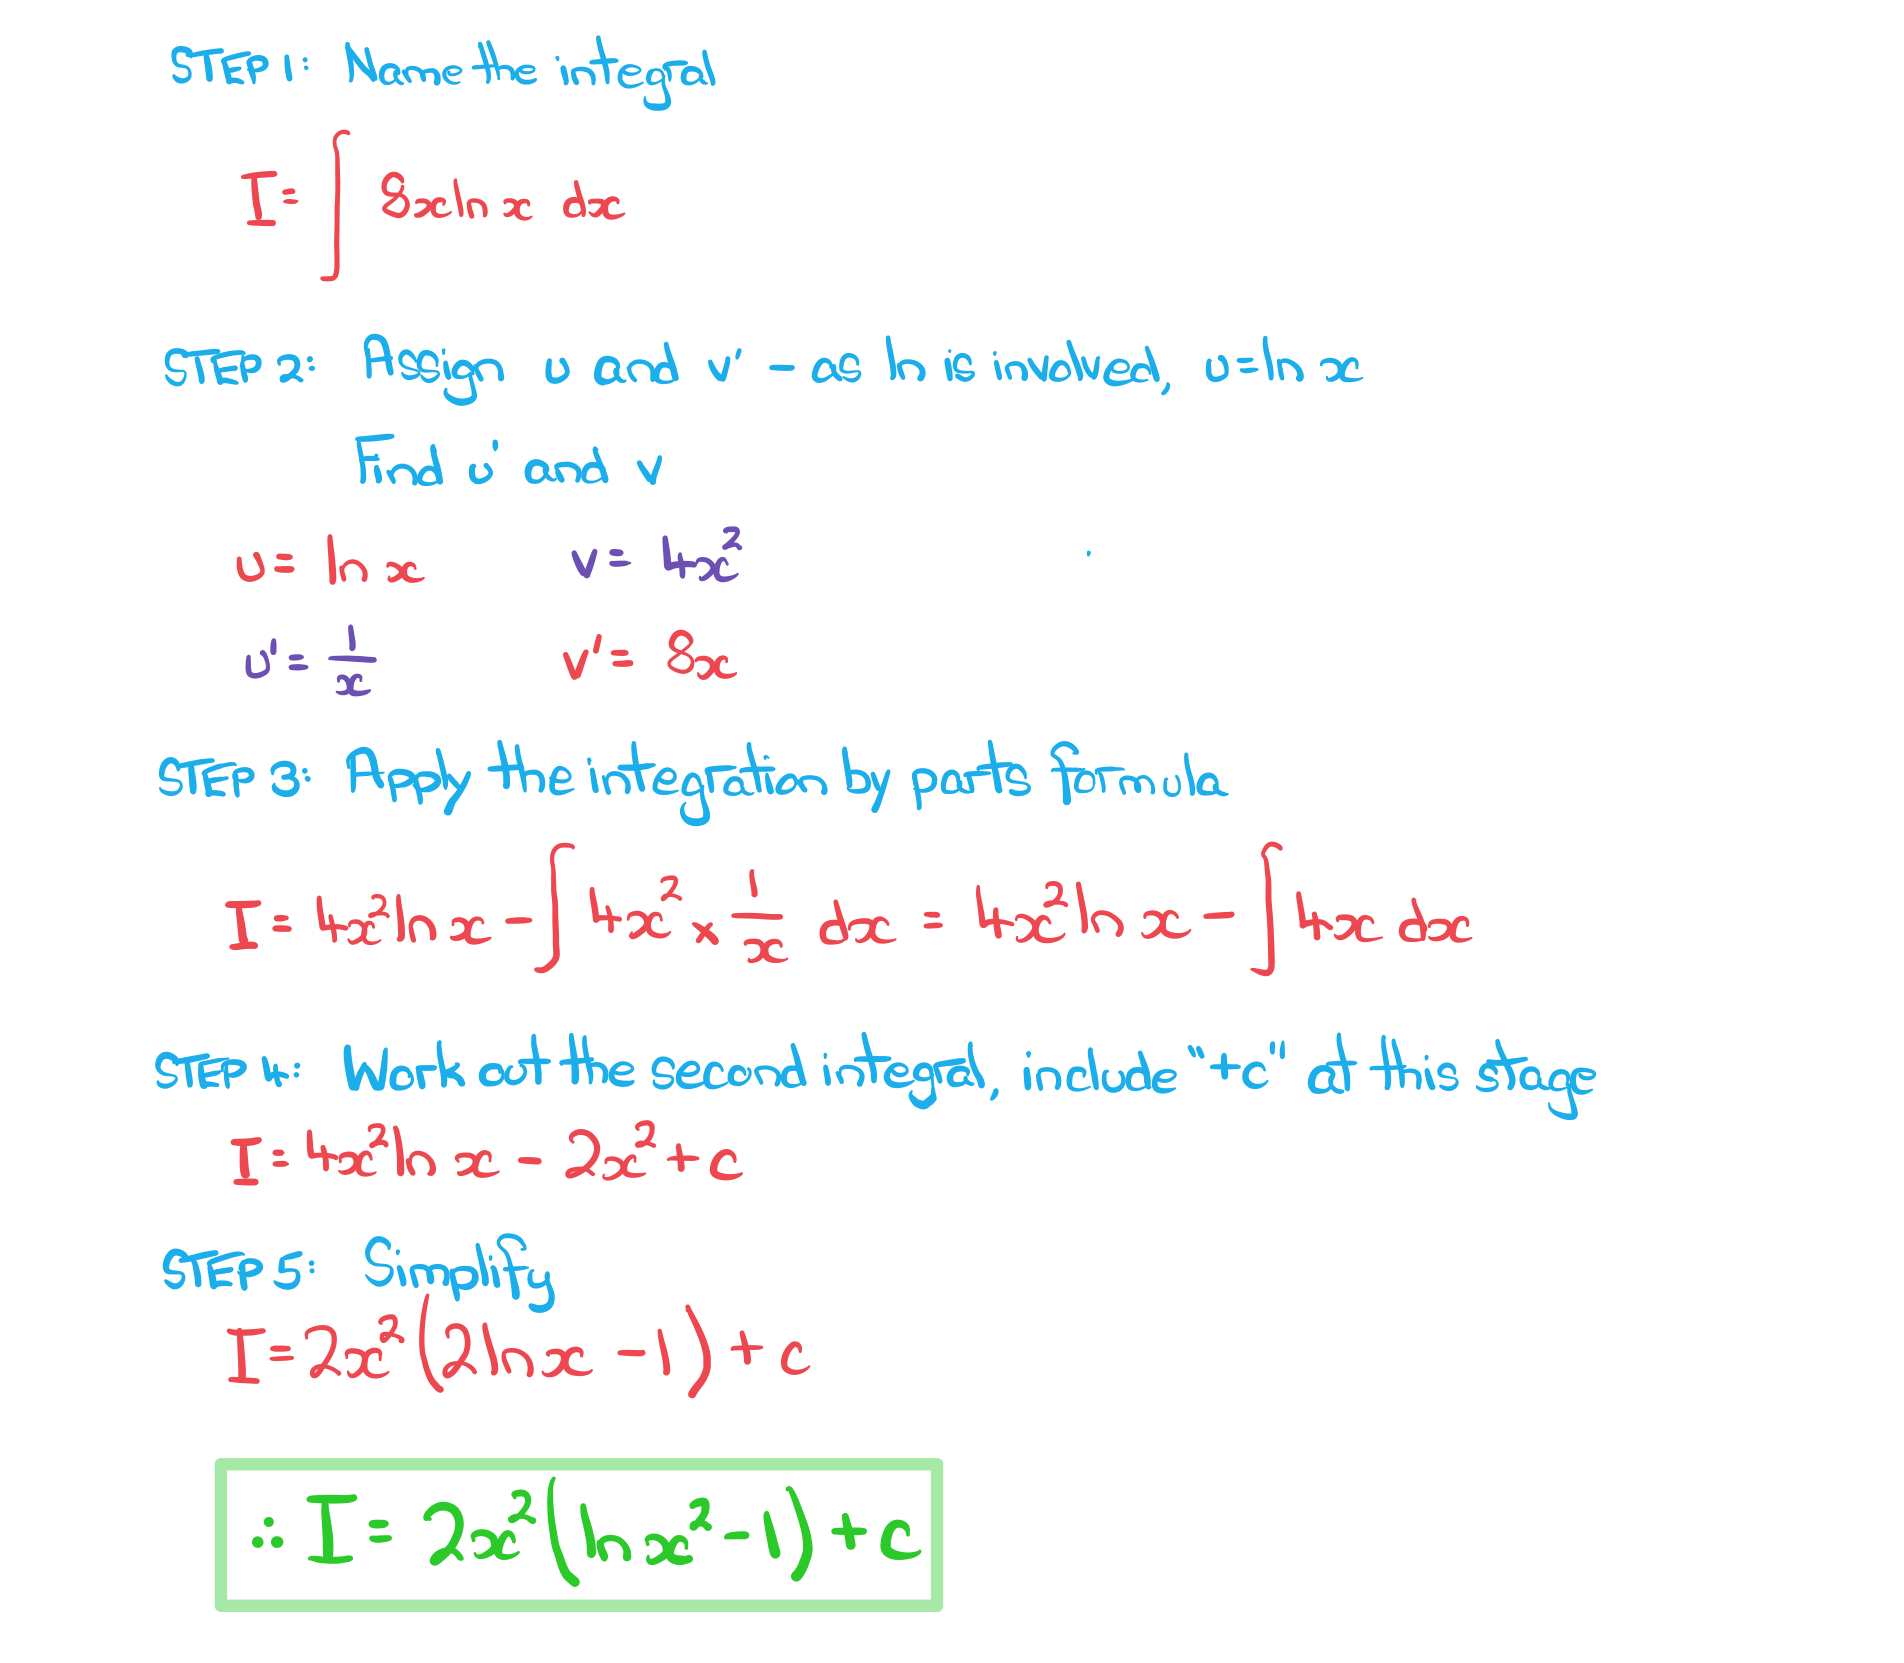 STEP 1: Name the integral
I = ∫ 8x ln x dx
STEP 2: Assign u and v' - as ln is involved, u = ln x
Find u' and v
u = ln x v = 4x²
u' = 1/x v' = 8x
STEP 3: Apply the integration by parts formula
I = 4x² ln x - ∫ 4x² × 1/x dx = 4x² ln x - ∫ 4x dx
STEP 4: Work out the second integral, include "+c" at this stage
I = 4x² ln x - 2x² + c
STEP 5: Simplify
I = 2x² (2 ln x - 1) + c
∴ I = 2x² (ln x² - 1) + c